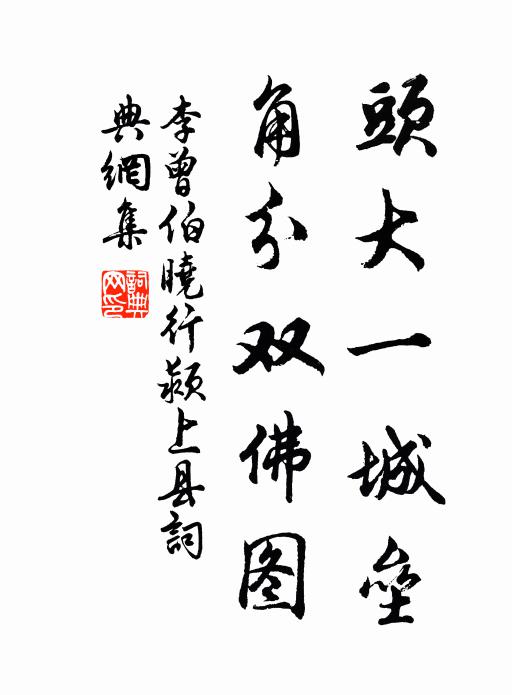 頭大一城壘
角分双佛图
李曾伯曉行潁上县詞
典網集
詞典
网印